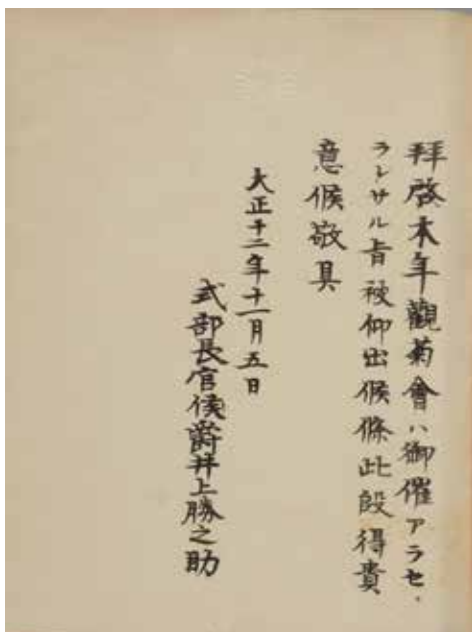 拝啓本年觀菊會ハ御催アラセ
ラレサル旨被仰出候條此段得貴
意候敬具
大正十二年十一月五日
式部長官侯爵井上勝之助